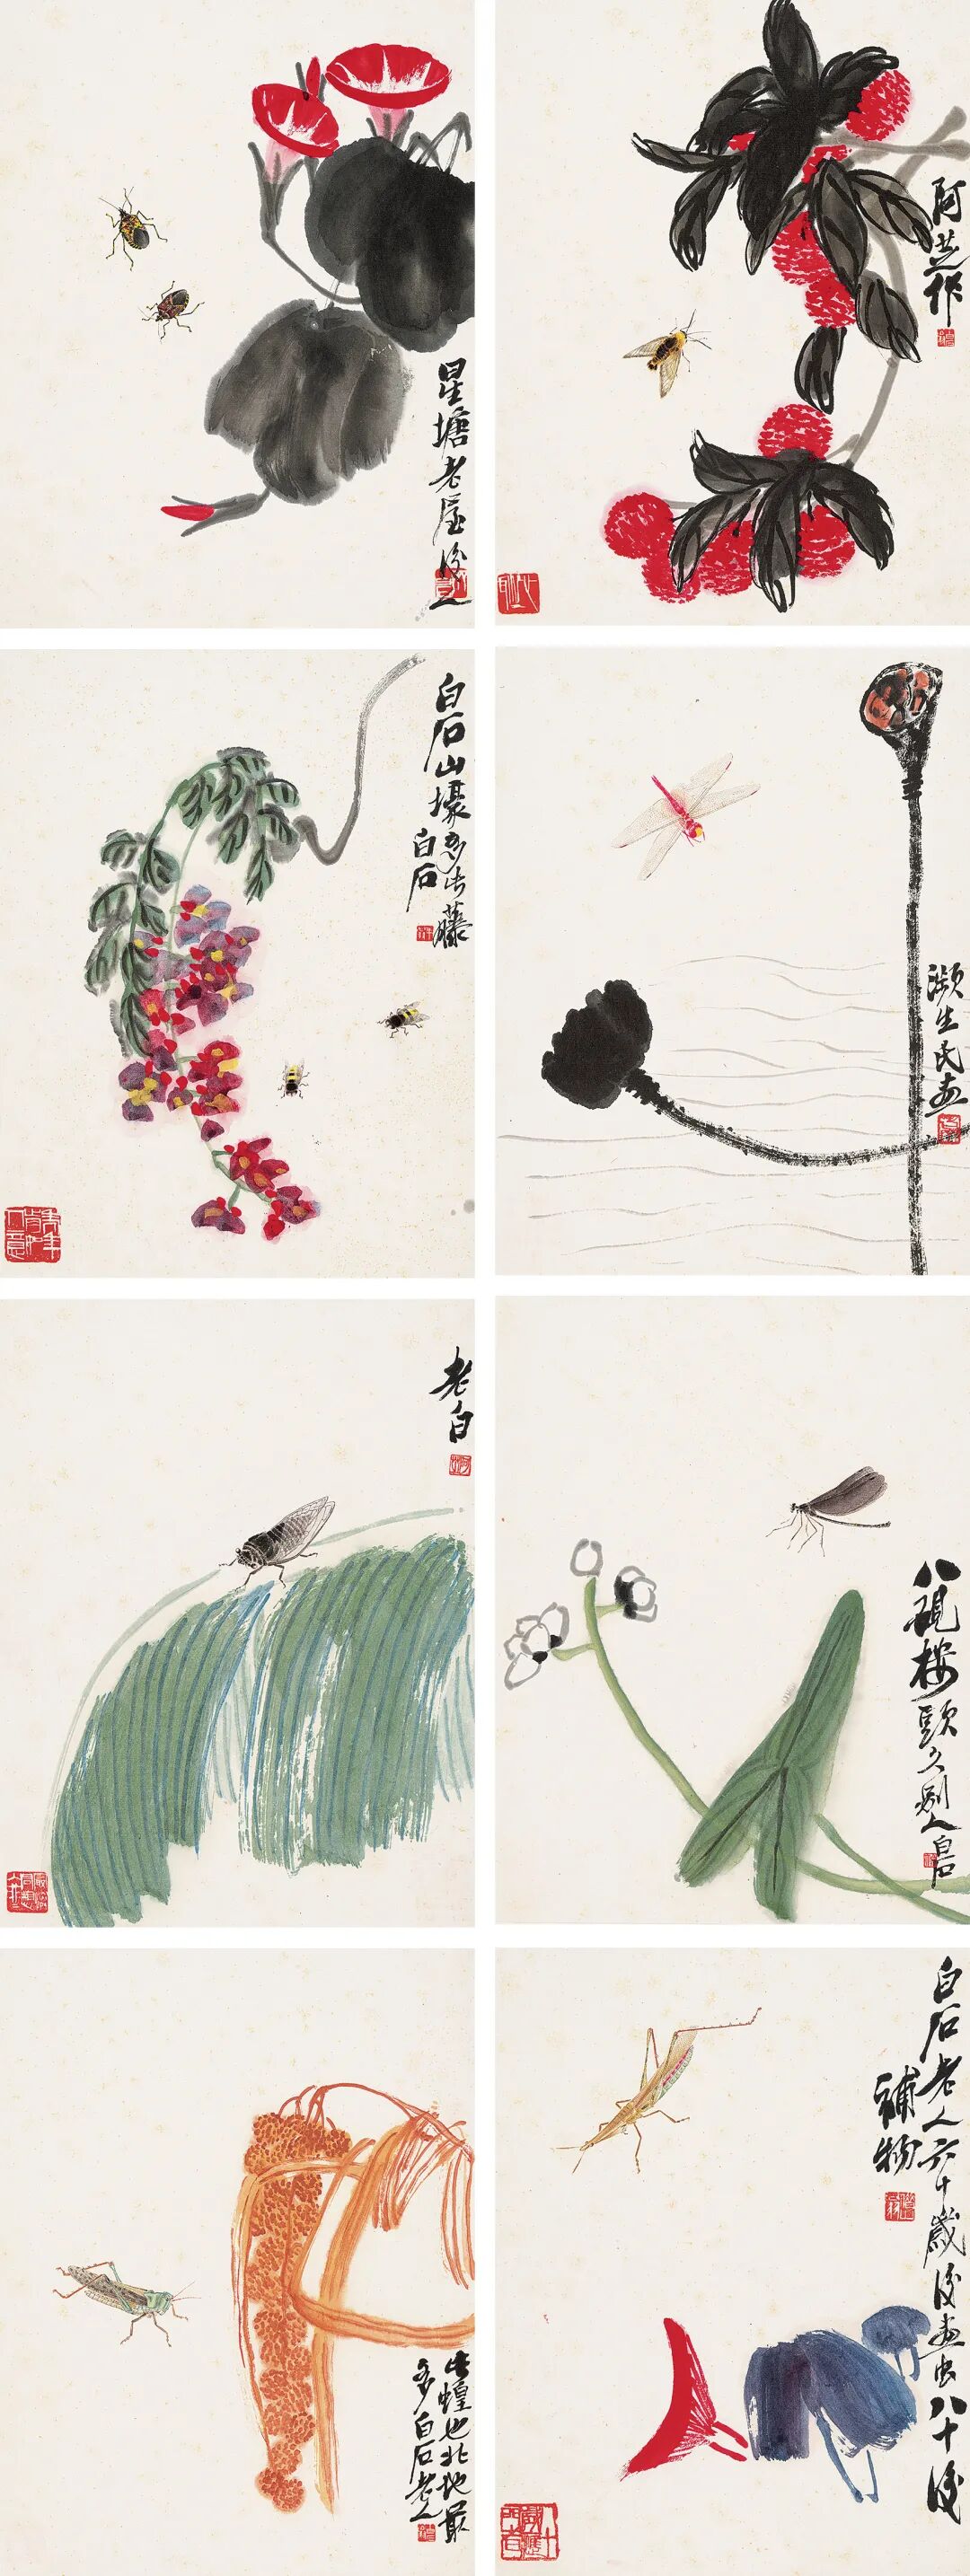 星塘老屋後人
阿芝作
白石山壕多此藤
白石
瀕生氏画
老白
八硯楼頭久別人白石
此蝗也北地最
多白石老人
白石老人六十歲後画虫八十後
補物